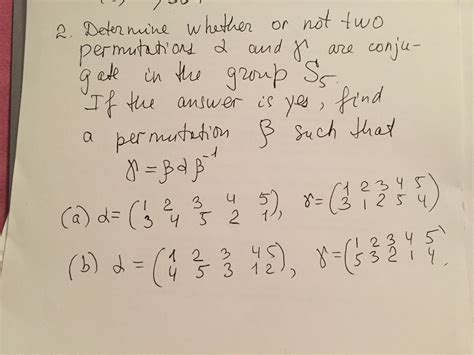 2. Determine whether or not two
permutations α and γ are conju-
gate in the group S₅.
If the answer is yes, find
a permutation β such that
γ = βαβ⁻¹
(a) α = (1 2 3 4 5 / 3 4 5 2 1), γ = (1 2 3 4 5 / 3 1 2 5 4)
(b) α = (1 2 3 4 5 / 4 5 3 1 2), γ = (1 2 3 4 5 / 5 3 2 1 4).